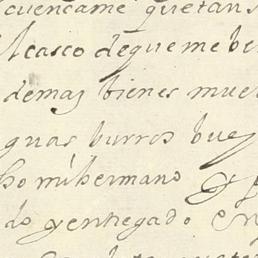 cuencame que tan
el casco de que me be
demas bienes mue
guas burros buey
ho mi hermano
do y entregado en